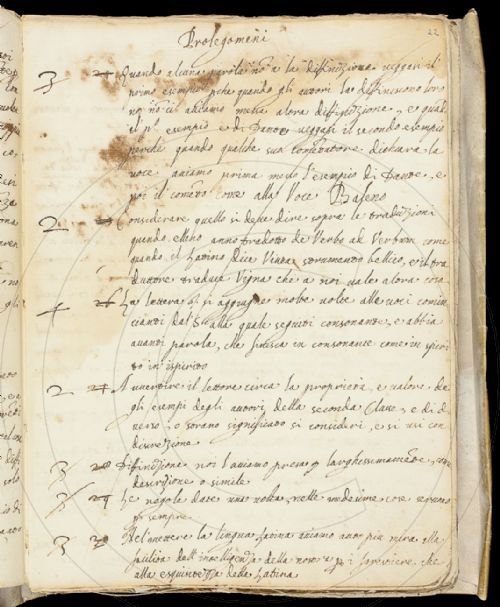 22
Prolegomeni
3 24 Quando alcuna parola non à la diffinizione veggasi il
primo esempio perche quando gli autori la diffiniscono loro
noi non ci abiamo messa alora diffinizione, e qual
il po esempio è di Dante veggasi il secondo esempio
perche quando qualche suo comentatore dichiara la
voce aviamo prima messo l'esempio di Dante, e
poi il comento come alla Voce Baleno
2 Considerare quello si deve dire sopra le traduzioni
quando elleno anno tradotto de Verbo ad Verbum come
quando il Latino dice Vinea strumento bellico, e il tra
duttore traduce Vigna che a noi vale alora cosa
4 La lettera I si aggiugne molte volte alle voci comin
cianti dal S alla quale seguiti consonante, e abbia
avanti parola, che finisca in consonante come in spiri
to in ispirito
2 Avvertire il lettore circa la proprietà, e valore de
gli esempi degli autori della seconda Classe, e di d
verso, o strano significato si consideri, e si usi con
discrezione
3 28 Diffinizione noi l'aviamo presa larghissimamente, con
descrizione o simile
29 Le regole date una volta, nelle medesime cose servano
per sempre
3 30 Nel mettere la lingua latina aviamo auto più mira alla
facilità dell'intelligenza della nostra
alla esquisitezza della Latina